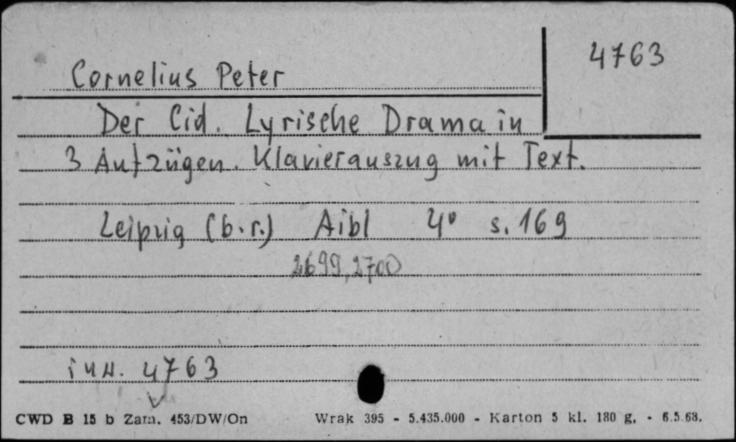 4763
Cornelius Peter
Der Cid. Lyrische Drama in
3 Aufzügen. Klavierauszug mit Text.
Leipzig (b.r.) Aibl 4° s. 169
2699, 2700
inw. 4763
CWD B 15 b Zam. 453/DW/On Wrak 395 - 5.435.000 - Karton 5 kl. 180 g. - 6.5.68.